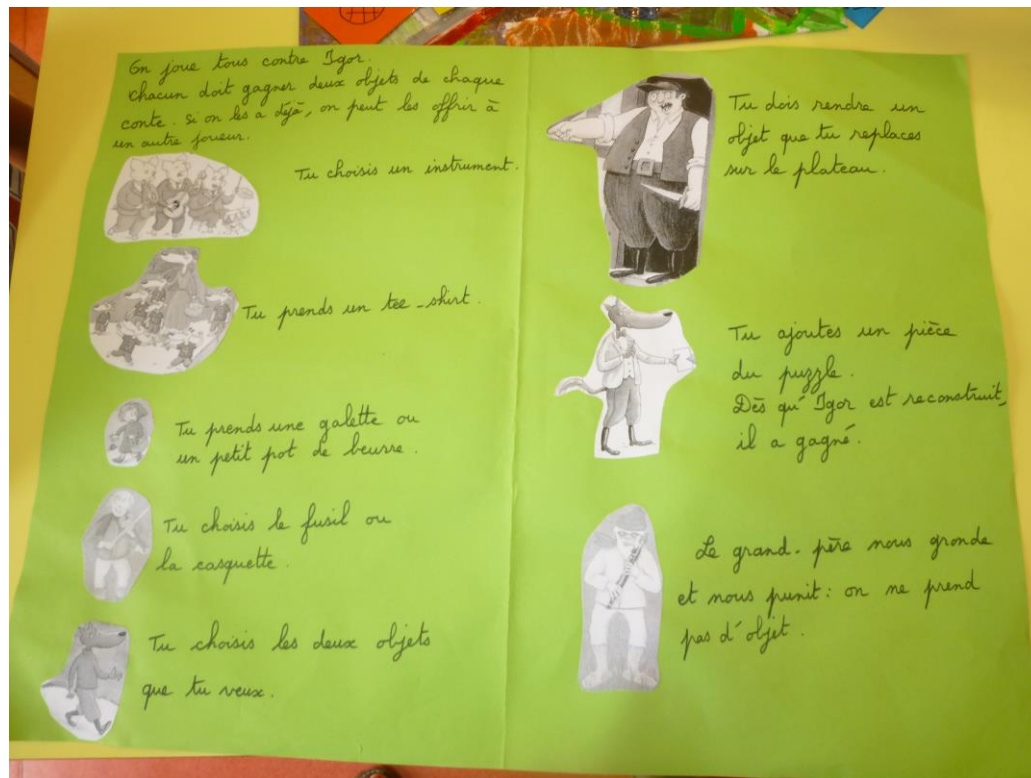 On joue tous contre Igor.
Chacun doit gagner deux objets de chaque
conte. Si on les a déjà, on peut les offrir à
un autre joueur.
Tu choisis un instrument.
Tu prends un tee-shirt.
Tu prends une galette ou
un petit pot de beurre.
Tu choisis le fusil ou
la casquette.
Tu choisis les deux objets
que tu veux.
Tu dois rendre un
objet que tu replaces
sur le plateau.
Tu ajoutes un pièce
du puzzle.
Dès qu'Igor est reconstruit,
il a gagné.
Le grand-père nous gronde
et nous punit : on ne prend
pas d'objet.